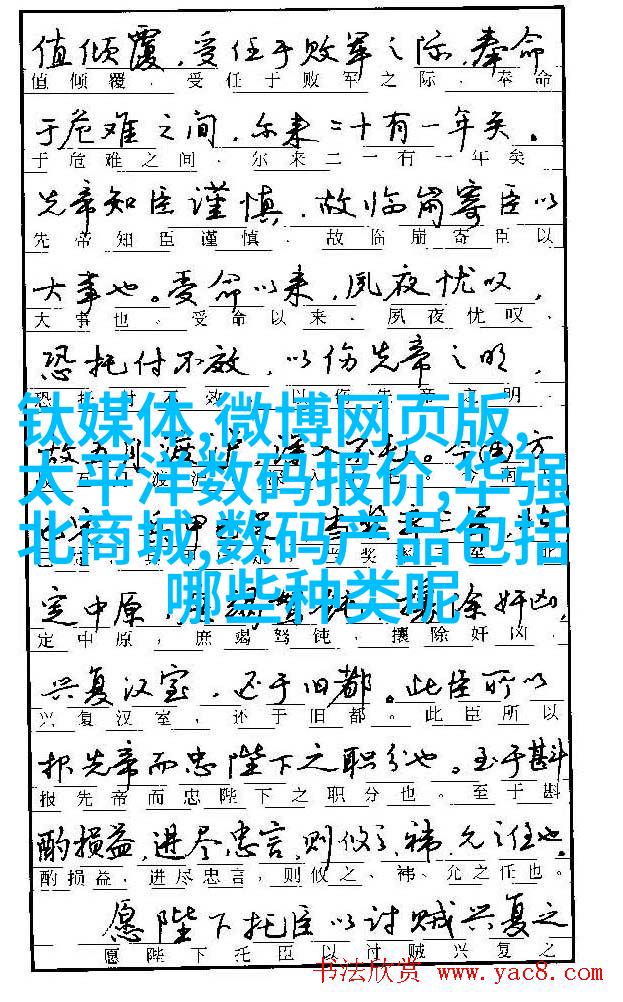 值倾覆，受任于败军之际，奉命
值倾覆，受任于败军之际，奉命
于危难之间，尔来二十有一年矣。
于危难之间，尔来二一有一年矣
先帝知臣谨慎，故临崩寄臣以
先帝知臣谨慎，故临崩寄臣以
大事也。受命以来，夙夜忧叹，
大事也。受命以来，夙夜忧叹，
恐托付不效，以伤先帝之明，
恐托付不效，以伤先帝之明，
钛媒体,微博网页版,
太平洋数码报价,华强
北商城,数码产品包括
哪些种类呢
定中原，庶竭驽钝，攘除奸凶，
定中原，庶竭驽钝，攘除奸凶，
兴复汉室，还于旧都。此臣所以
兴复汉室，还于旧都。此臣所以
报先帝而忠陛下之职分也。至于斟
报先帝而忠陛下之职分也。至于斟
酌损益，进尽忠言，则攸之、祎、允之任也。
酌损益，进尽忠言，则攸之、祎、允之任也。
愿陛下托臣以讨贼兴复之
愿陛下托臣以讨贼兴复之
书法欣赏 www.yac8.com